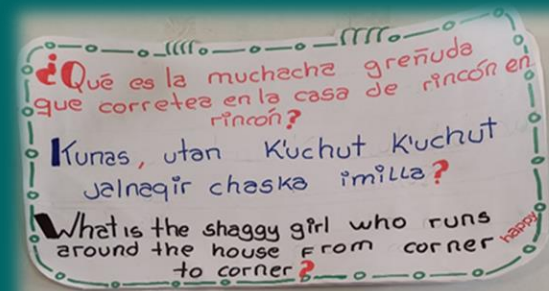 ¿Qué es la muchacha greñuda
que corretea en la casa de rincón en
rincón?
Kunas, utan K'uchut K'uchut
Jalnaqir chaska imilla?
What is the shaggy girl who runs
around the house from corner
to corner?
happy